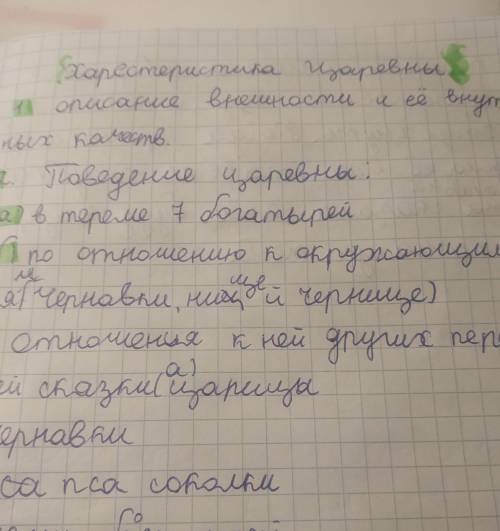 Харестеристика царевны
1 описание внешности и её внут
ных качеств.
2. Поведение царевны:
а) в тереме 7 богатырей
по отношению к окружающим
я(Чернавки, нищей чернице)
отношения к ней других пер
ей сказки(а) царица
ернавки
са пса соколки